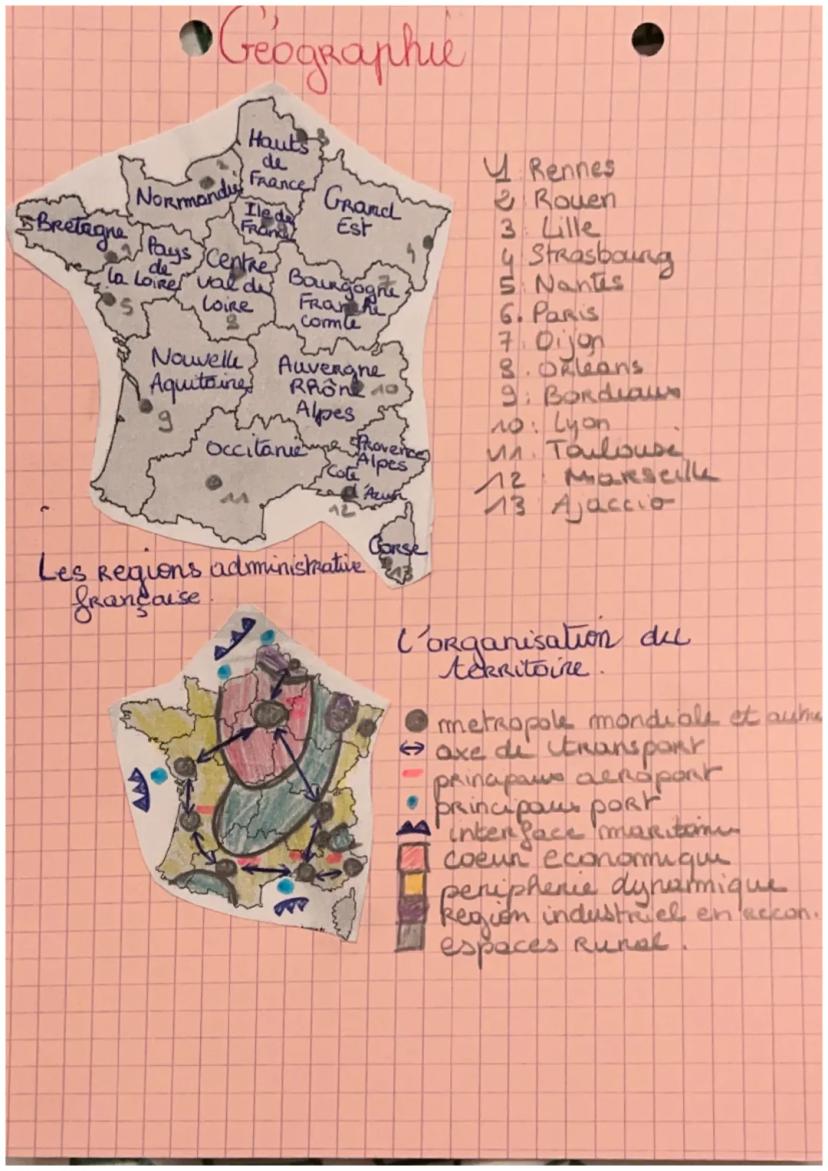 Géographie
Hauts
de
France
3
2
Normandie
Grand
Est
4
Ile de
France
6
Bretagne
1
Pays
de
la Loire
5
Centre
val du
Loire
8
Bourgogne
Franche
comté
7
Nouvelle
Aquitaine
9
Auvergne
RRhône
Alpes
10
Occitanie
11
Provence
Alpes
Cote
d'Azur
12
Corse
13
1 Rennes
2 Rouen
3 Lille
4 Strasbourg
5 Nantes
6. Paris
7 Dijon
8. Orléans
9: Bordeaux
10: Lyon
11. Toulouse
12 Marseille
13 Ajaccio
Les regions administrative
française.
L'organisation du
territoire.
metropole mondiale et autre
axe de transport
principaux aeroport
principaux port
interface maritime
coeur economique
peripherie dynamique
Region industriel en recon.
espaces Rural.